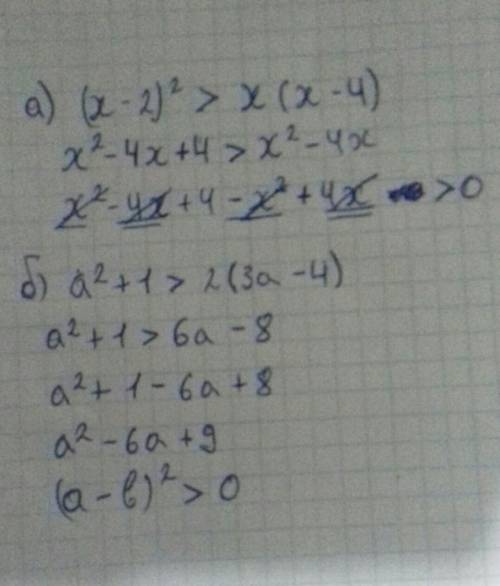 а) (x - 2)² > x (x - 4)
x² - 4x + 4 > x² - 4x
x² - 4x + 4 - x² + 4x > 0
б) a² + 1 > 2(3a - 4)
a² + 1 > 6a - 8
a² + 1 - 6a + 8
a² - 6a + 9
(a - b)² > 0